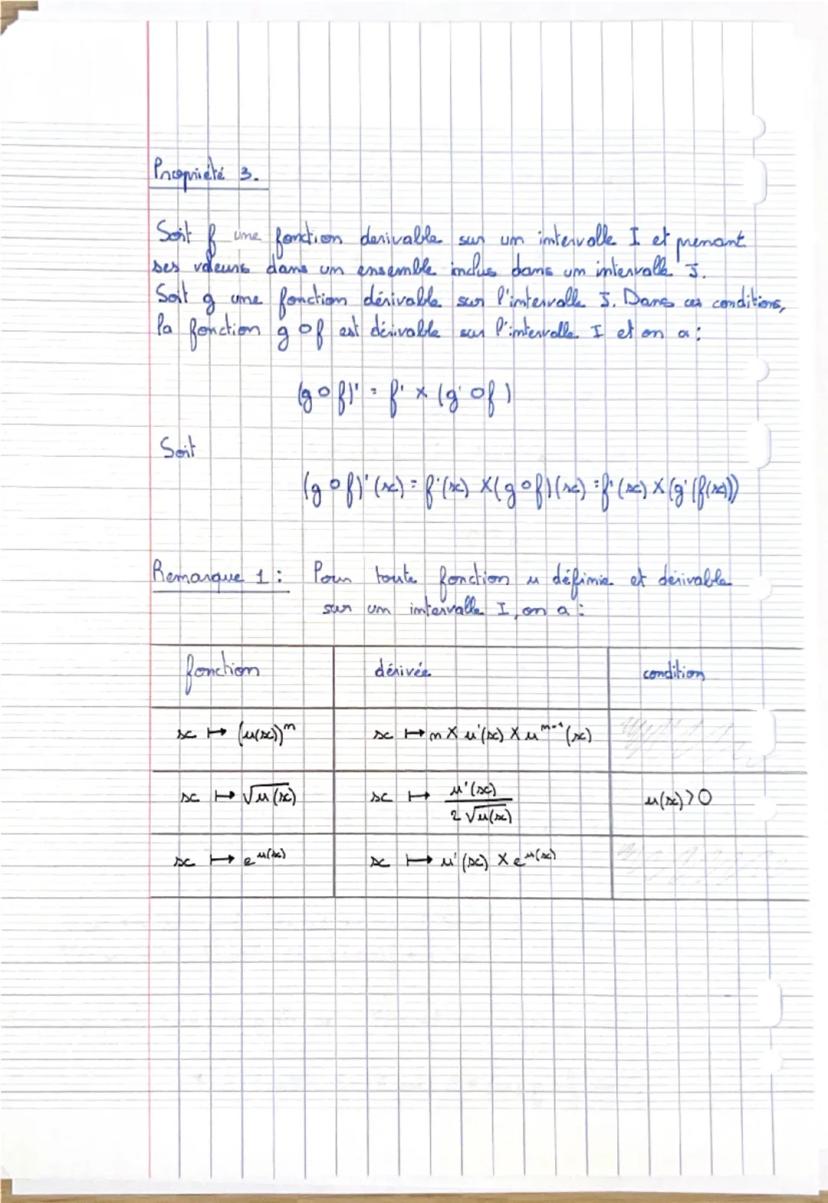 Propriété 3.
Soit f une fonction derivable sur un intervalle I et prenant
ses valeurs dans un ensemble inclus dans un intervalle J.
Soit g une fonction dérivable sur l'intervalle J. Dans ces conditions,
la fonction g o f est dérivable sur l'intervalle I et on a :
(g o f)' = f' × (g' o f)
Soit
(g o f)'(x) = f'(x) × (g o f)(x) = f'(x) × (g'(f(x))
Remarque 1 : Pour toute fonction u définie et dérivable
sur un intervalle I, on a :
fonction dérivée condition
x ↦ (u(x))^n x ↦ n × u'(x) × u^{n-1}(x)
x ↦ √u(x) x ↦ u'(x) / 2√u(x) u(x) > 0
x ↦ e^{u(x)} x ↦ u'(x) × e^{u(x)}